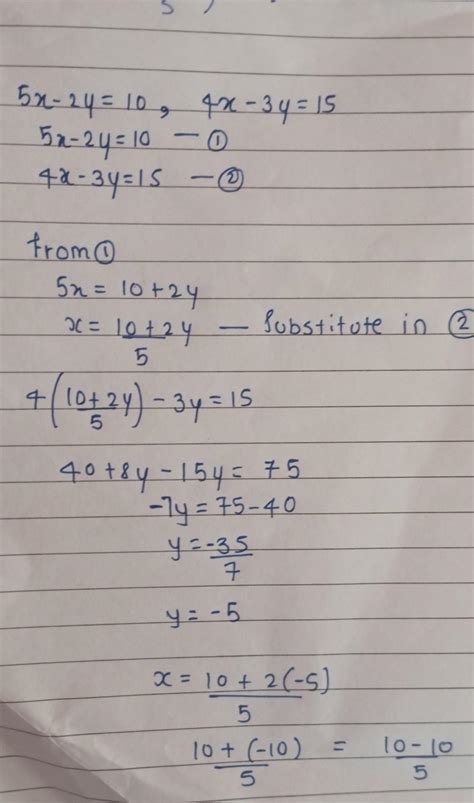 5x-2y=10, 4x-3y=15
5x-2y=10 — ①
4x-3y=15 — ②
from ①
5x = 10+2y
x = (10+2y)/5 — Substitute in ②
4((10+2y)/5) - 3y = 15
40+8y-15y = 75
-7y = 75-40
y = -35/7
y = -5
x = (10 + 2(-5))/5
(10 + (-10))/5 = (10-10)/5